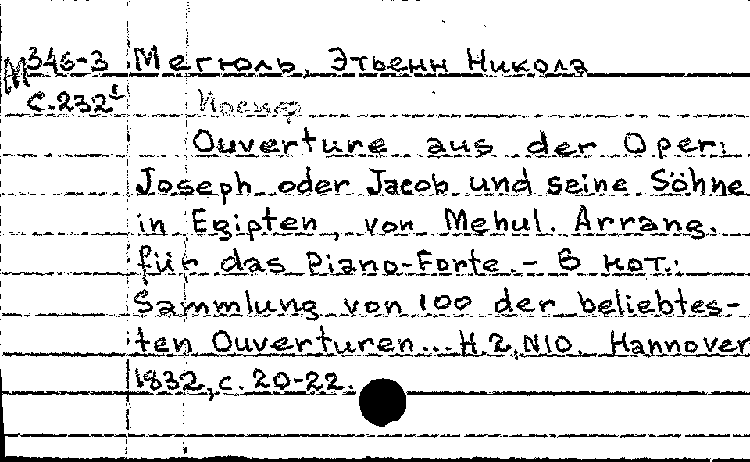 М 346-3 Мегюль, Этьенн Никола
с.232¹ Иосиф
Ouverture aus der Oper:
Joseph oder Jacob und seine Söhne
in Egipten, von Mehul. Arrang.
für das Piano-Forte. - В нот.:
Sammlung von 100 der beliebtes-
ten Ouverturen... H.2, N10. Hannover
1832, с. 20-22.